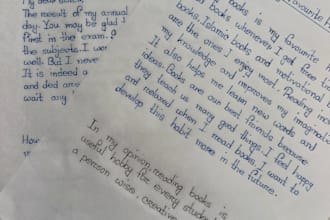 The result of my annual
day. You may be glad
First in the exam.
the subjects. I
well. But I never
It is indeed a
and ded
wait any
How
favourite
books is my favourite
books whenever I get free
books, Islamic books and motivational
are the ones I enjoy most. Reading
my knowledge and improves my
It also helps me learn new
ideas. Books are our best friends because
they teach us many good things. I feel happy
and relaxed when I read books. I want to
develop this habit more in the future.
In my opinion, reading books is
useful hobby for every student
a person wise, creative